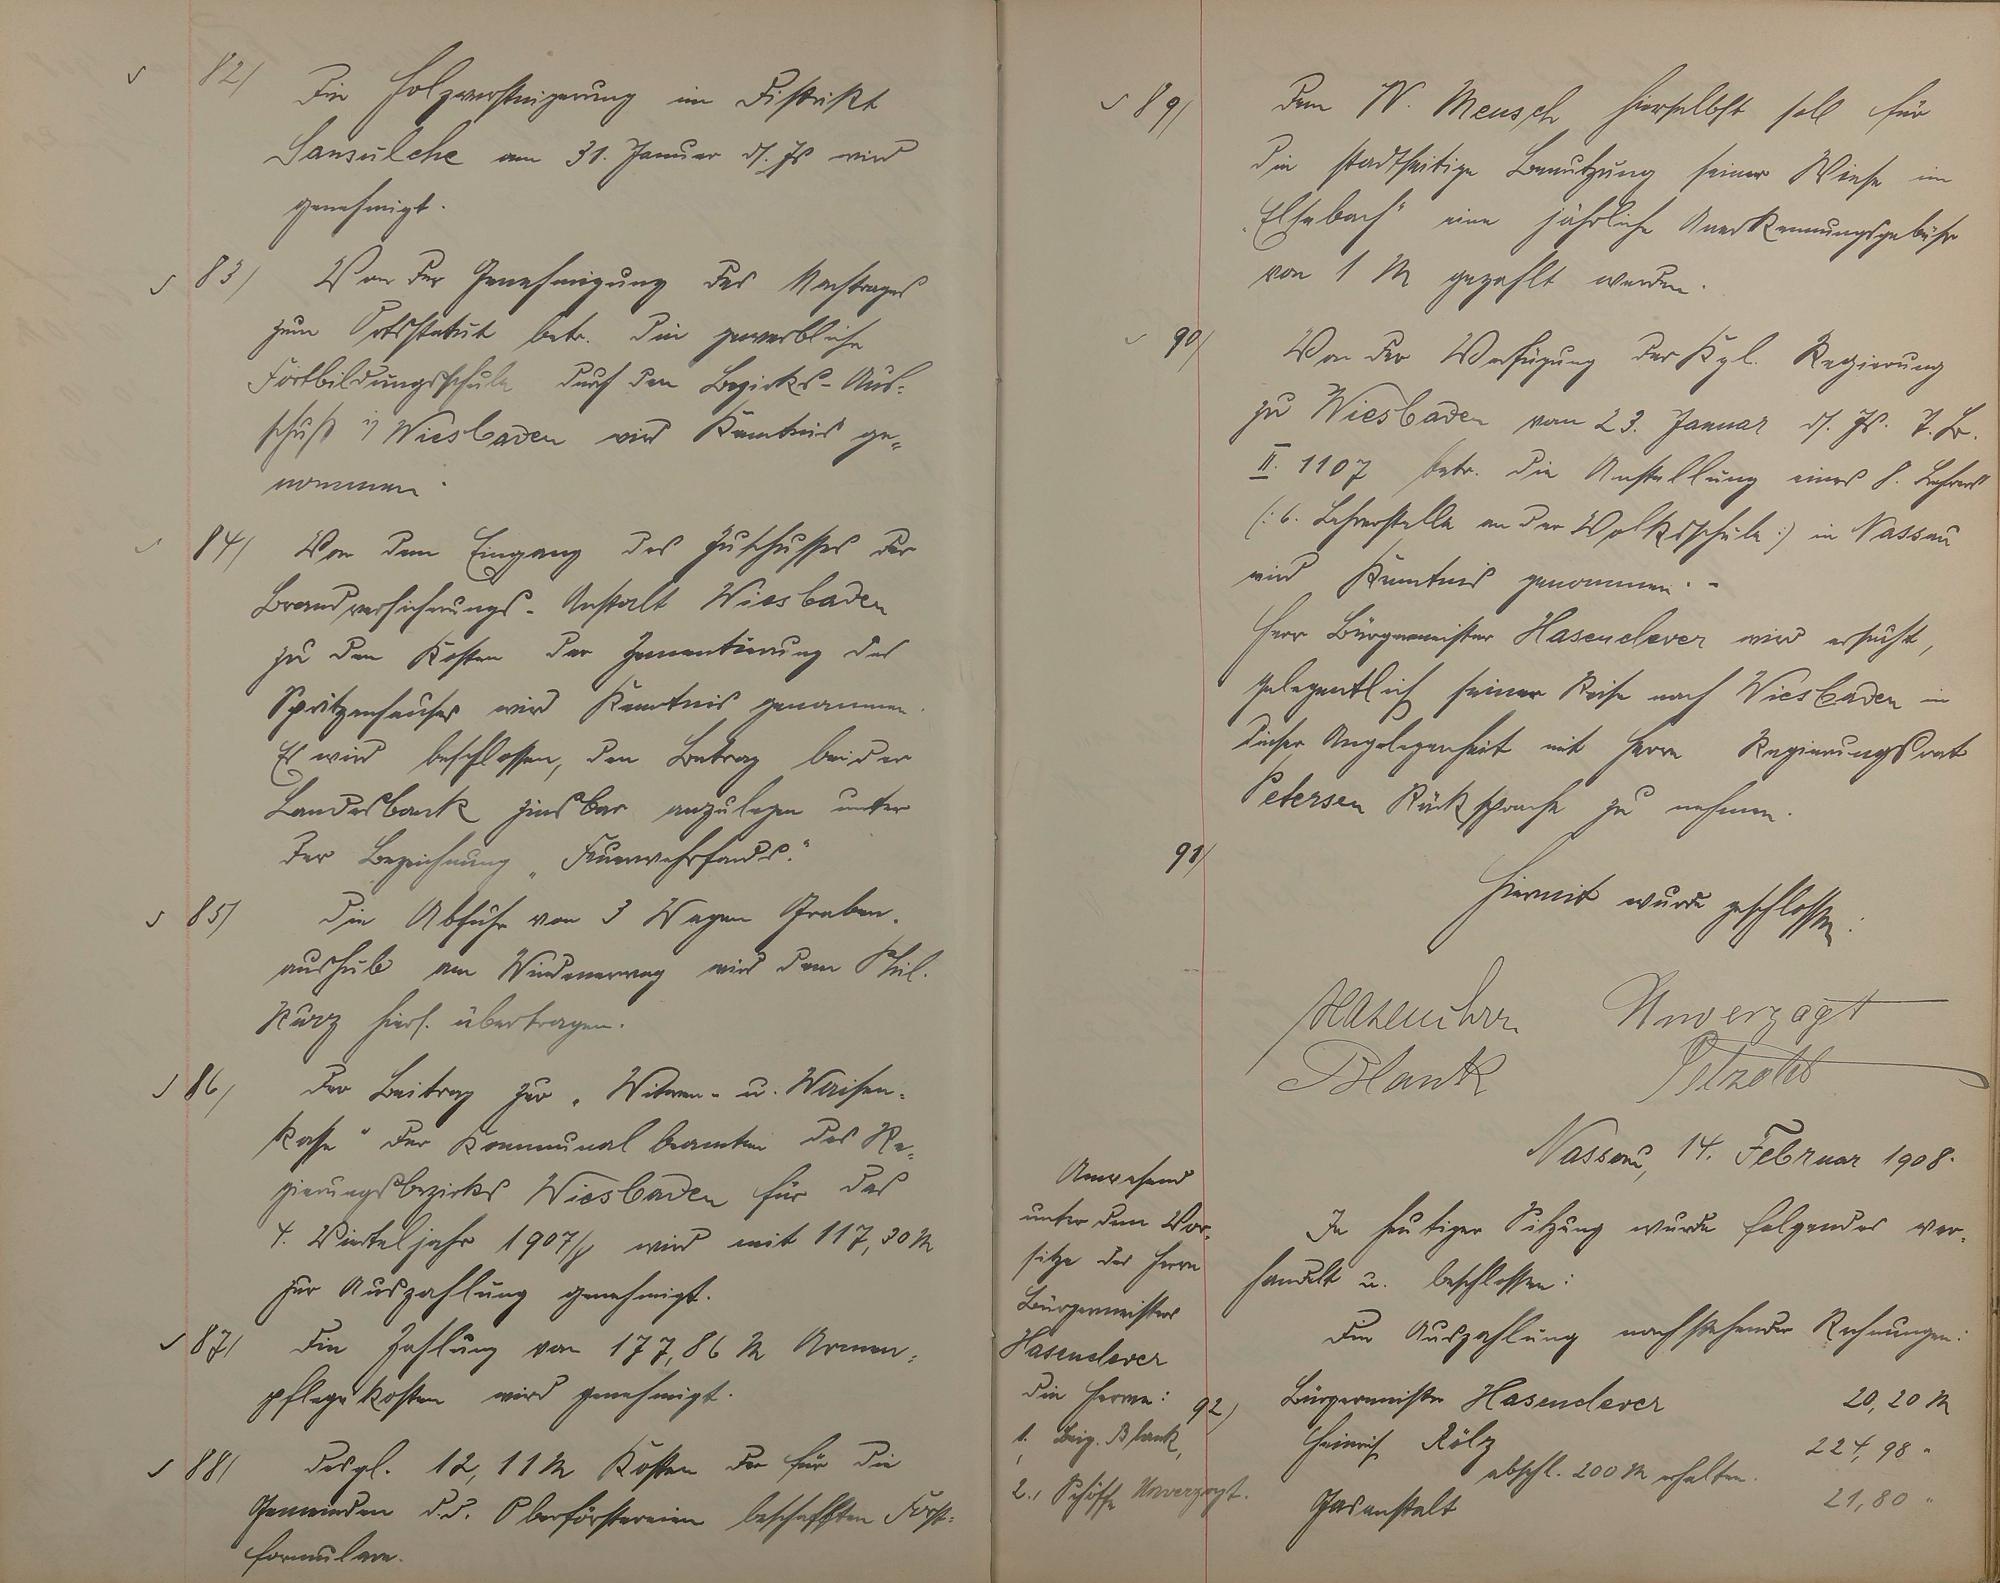 82/ Die Holzversteigerung im Distrikt
Sansülche am 31. Januar d. Js wird
genehmigt.
83/ Von der Genehmigung des Nachtrages
zum Ortsstatut betr. die gewerbliche
Fortbildungsschule durch den Bezirks-Aus-
schuß in Wiesbaden wird Kenntnis ge-
nommen.
84/ Von dem Eingang des Zuschusses der
Brandversicherungs-Anstalt Wiesbaden
zu den Kosten der Zementierung des
Spritzenhauses wird Kenntnis genommen.
Es wird beschlossen, den Betrag bei der
Landesbank zinsbar anzulegen unter
der Bezeichnung „Feuerwehrfonds."
85/ Die Abfuhr von 3 Wagen Graben-
aushub am Windenerweg wird dem Phil.
Kurz hiers. übertragen.
86/ Der Beitrag zur „Witwen- u. Waisen-
kasse" der Kommunalbeamten des Re-
gierungsbezirks Wiesbaden für das
4. Vierteljahr 1907/8 wird mit 117,30 M
zur Auszahlung genehmigt.
87/ Die Zahlung von 177,86 M Armen-
pflegekosten wird genehmigt.
88/ desgl. 12,11 M Kosten der für die
Gemeinden d. d. Oberförstereien beschafften Forst-
formulare.
89/ Dem W. Meusch hierselbst soll für
die stadtseitige Benutzung seiner Wiese im
„Elsebach" eine jährliche Anerkennungsgebühr
von 1 M gezahlt werden.
90/ Von der Verfügung der Kgl. Regierung
zu Wiesbaden vom 23. Januar d. Js. J. Br.
II. 1107 betr. die Anstellung eines 8. Lehrers
(: 6. Lehrerstelle an der Volksschule :) in Nassau
wird Kenntnis genommen. -
Herr Bürgermeister Hasenclever wird ersucht,
gelegentlich seiner Reise nach Wiesbaden in
dieser Angelegenheit mit Herrn Regierungsrat
Petersen Rücksprache zu nehmen.
91/
Hiermit wurde geschlossen:
Hasenclever Unverzagt
Blank
Nassau, 14. Februar 1908.
Anwesend
unter dem Vor-
sitze des Herrn
Bürgermeisters
Hasenclever
die Herren:
1. Beig. Blank,
2., Schöffe Unverzagt.
In heutiger Sitzung wurde folgendes ver-
handelt u. beschlossen:
Die Auszahlung nachstehender Rechnungen:
92/ Bürgermeister Hasenclever 20,20 M
Heinrich Rölz 224,98 "
abschl. 200 M erhalten.
Gasanstalt 21,80 "